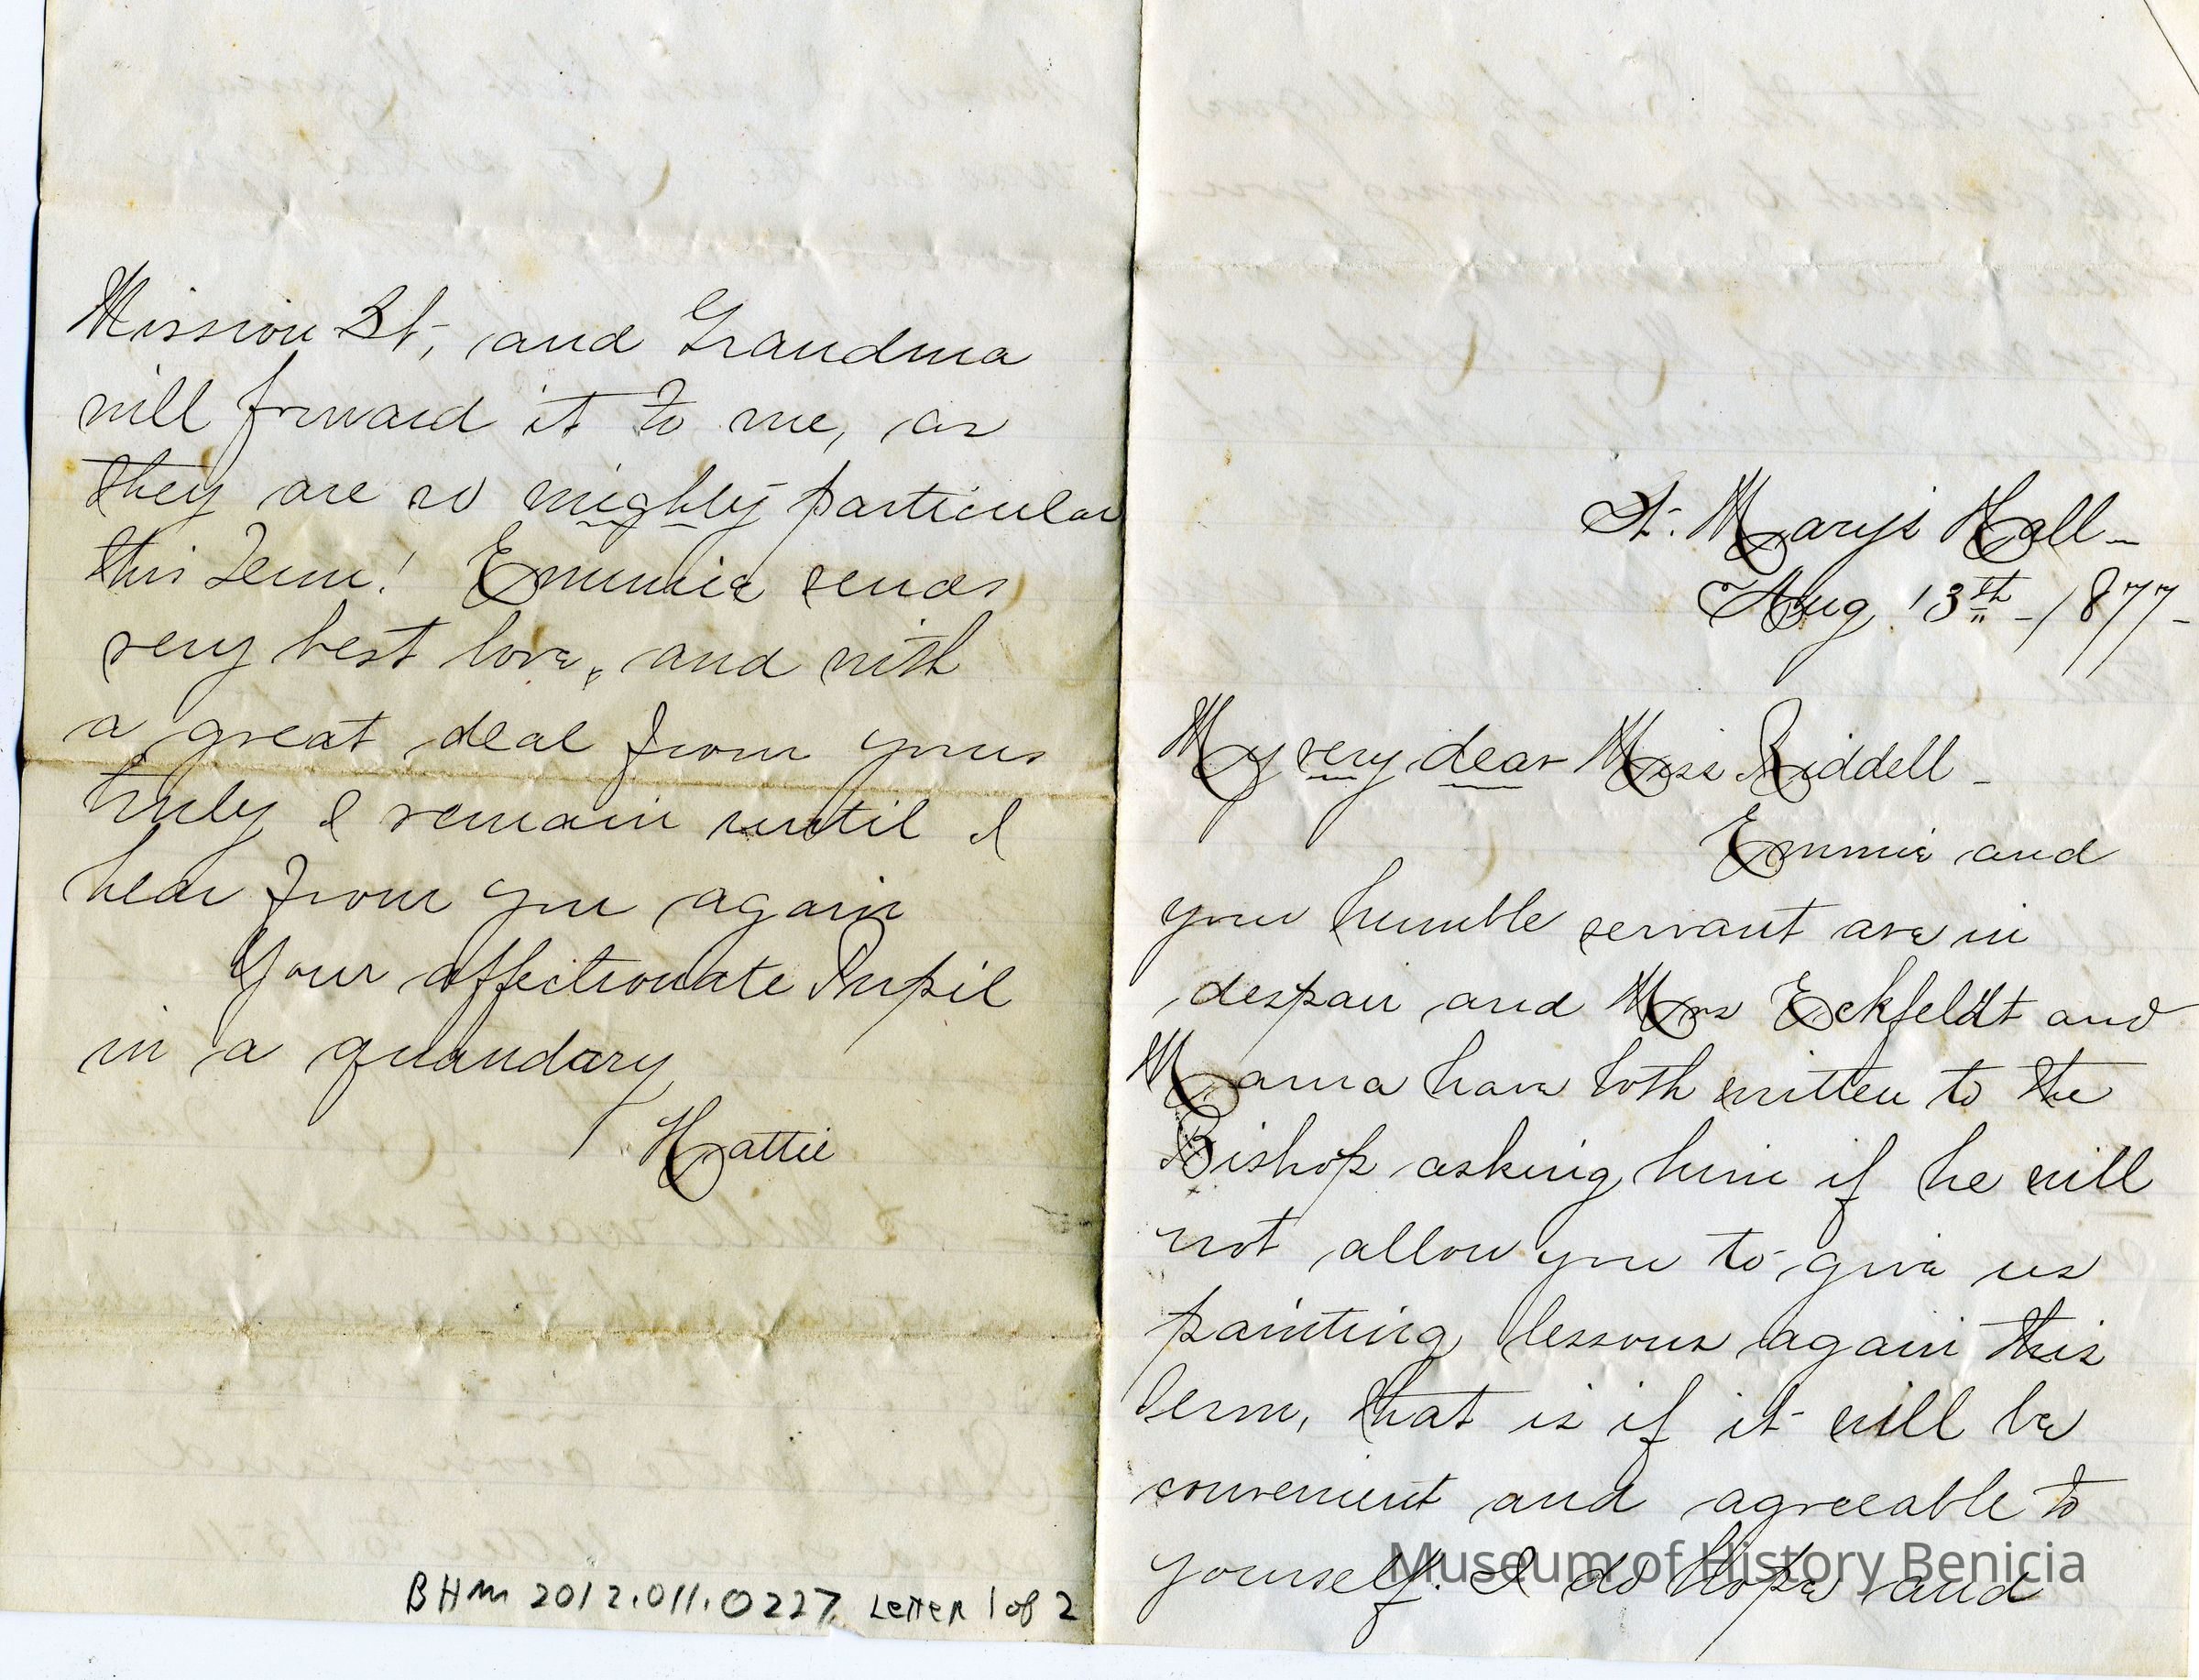 Mission St, and Grandma
will forward it to me, as
they are so mighty particular
this Term! Emmie sends
very best love, and with
a great deal from yours
truly I remain until I
hear from you again
Your affectionate Pupil
in a quandary
Hattie
BHM 2012.011.0227. Letter 1 of 2
St. Mary's Hall -
Aug. 13th - 1877 -
My very dear Miss Riddell -
Emmie and
your humble servant are in
despair and Mrs Eckfeldt and
Mama have both written to the
Bishop asking him if he will
not allow you to give us
painting lessons again this
Term, that is if it will be
convenient and agreeable to
yourself. I do hope and
Museum of History Benicia